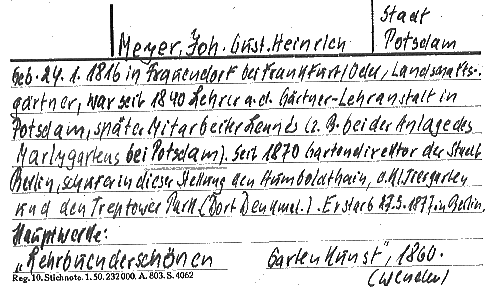 Stadt
Meyer, Joh. Gust. Heinrich Potsdam
Geb. 24.1.1816 in Frauendorf bei Frankfurt/Oder, Landschafts-
gärtner, war seit 1840 Lehrer a.d. Gärtner-Lehranstalt in
Potsdam, später Mitarbeiter Lennés (z.B. bei der Anlage des
Marlygartens bei Potsdam). Seit 1870 Gartendirektor der Stadt
Berlin, schuf er in dieser Stellung den Humboldthain, d. Kl. Tiergarten
und den Treptower Park. (Dort Denkmal.). Er starb 27.5.1877 in Berlin.
Hauptwerke:
"Lehrbuch der schönen Gartenkunst", 1860.
Reg. 10. Stichnote. 1. 50. 232 000. A. 803. S. 4062 (Wendel)